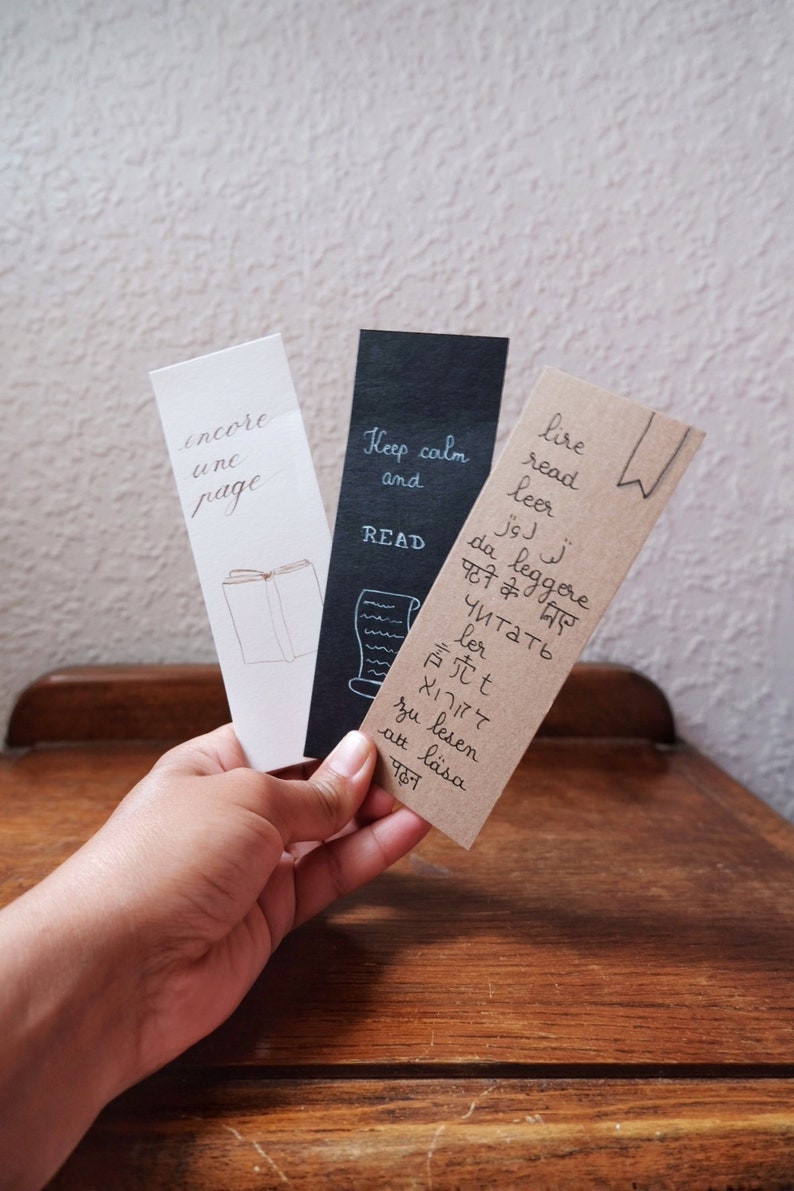 encore
une
page
Keep calm
and
READ
lire
read
leer
da leggere
पढने के लिए
читать
ler
לקרוא
zu lesen
att läsa
पढुन